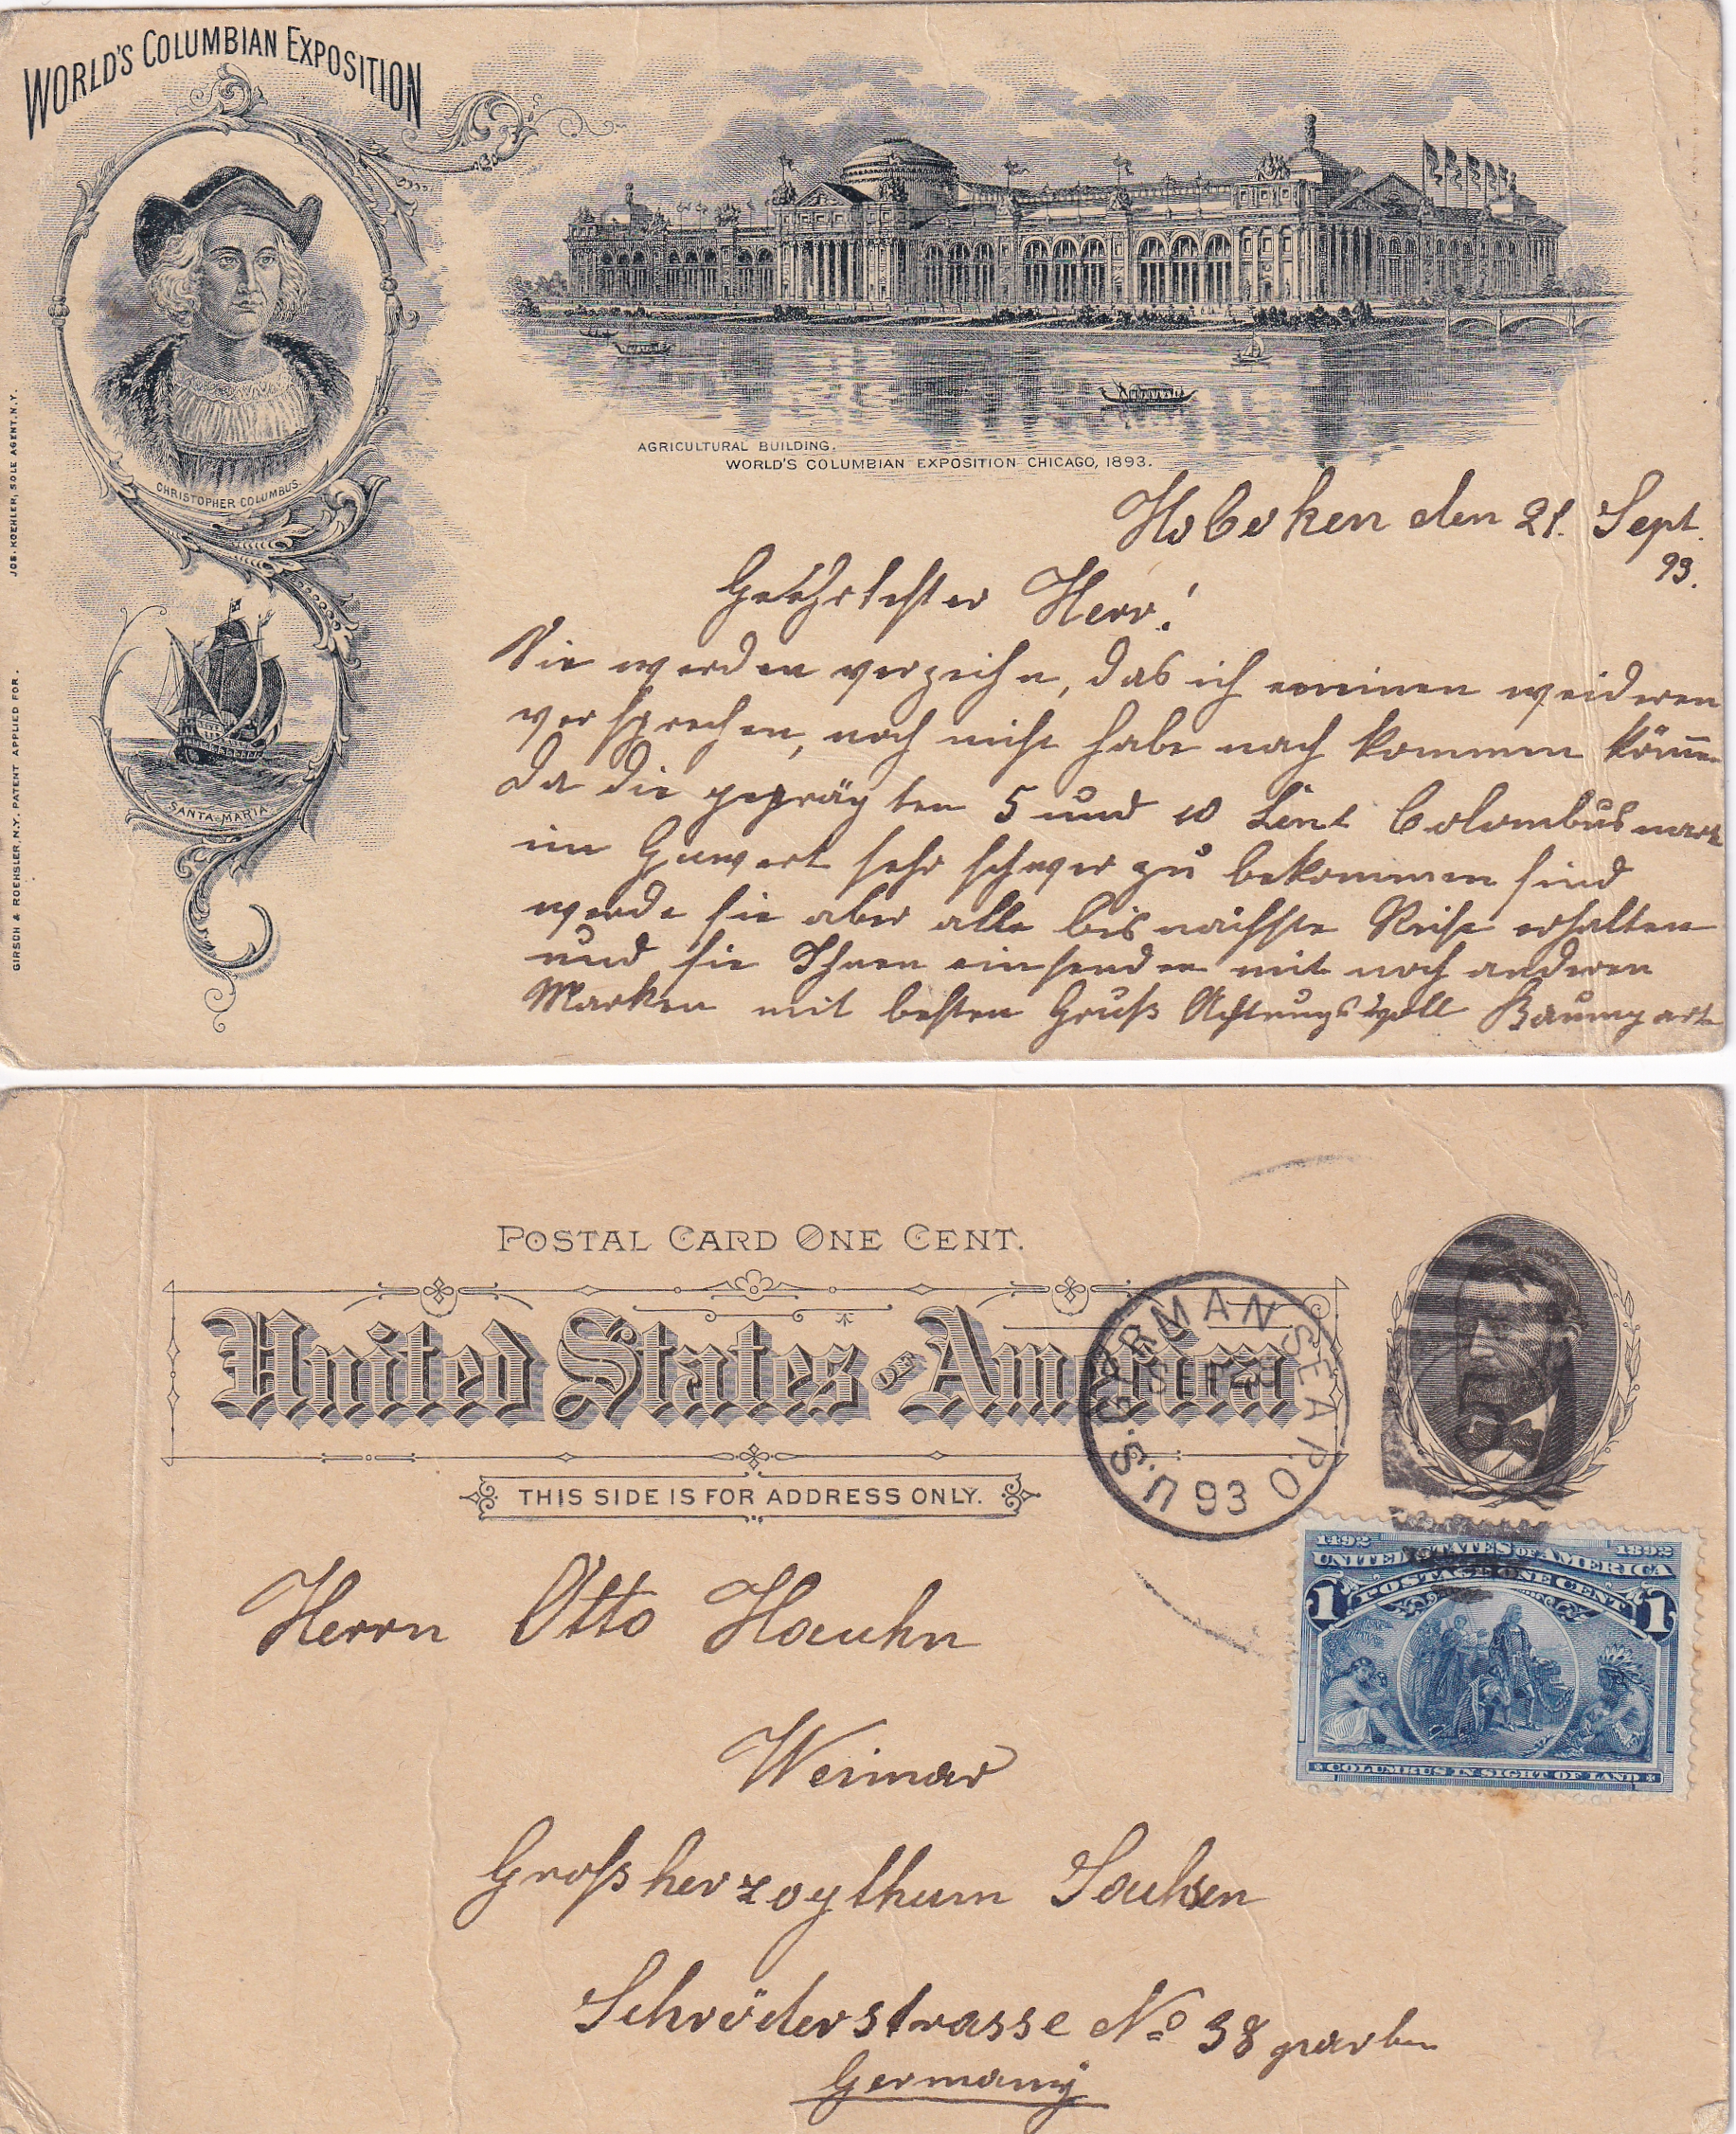 WORLD'S COLUMBIAN EXPOSITION
CHRISTOPHER COLUMBUS.
SANTA-MARIA
JOS. KOEHLER, SOLE AGENT. N.Y.
GIRSCH & ROEHSLER, N.Y. PATENT APPLIED FOR.
AGRICULTURAL BUILDING.
WORLD'S COLUMBIAN EXPOSITION CHICAGO, 1893.
Hoboken den 21. Sept.
93.
Geehrtester Herr!
Sie werden verzeihn, das ich meinen weideren
versprechen, noch nicht habe nach kommen könn
da die geprägten 5 und 10 Cent Colombusmark
im Guwert sehr schwer zu bekommen sind
werde sie aber alle bis nächste Reise erhalten
und sie Ihnen einsenden mit noch anderen
Marken mit besten Gruß Achtungsvoll Baumgart
POSTAL CARD ONE CENT.
United States OF America
THIS SIDE IS FOR ADDRESS ONLY.
U.S. GERMAN SEA P O
93
1492 1892
UNITED STATES OF AMERICA
POSTAGE ONE CENT
1 1
COLUMBUS IN SIGHT OF LAND
Herrn Otto Hauhn
Weimar
Großherzogthum Sachsen
Schröderstrasse No 38 parben
Germany